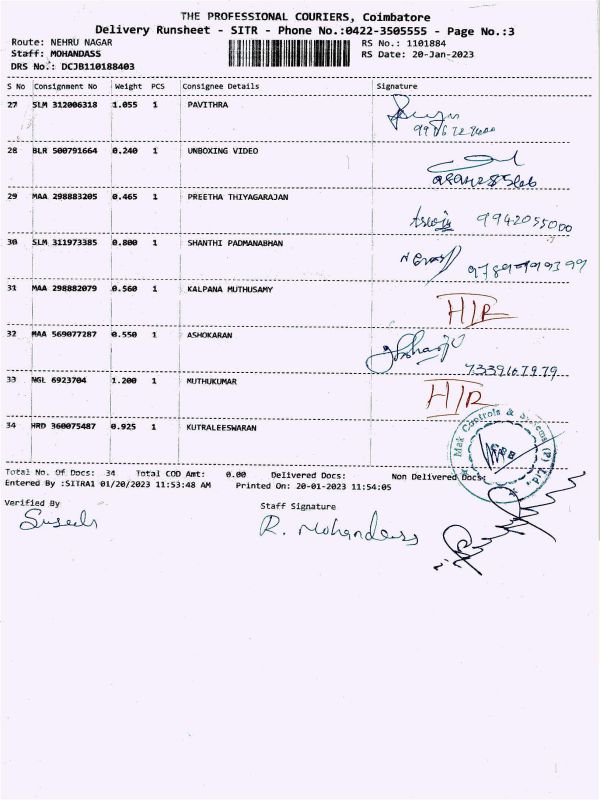 THE PROFESSIONAL COURIERS, Coimbatore
Delivery Runsheet - SITR - Phone No.:0422-3505555 - Page No.:3
Route: NEHRU NAGAR RS No.: 1101884
Staff: MOHANDASS RS Date: 20-Jan-2023
DRS No.: DCJB110188403
S No Consignment No Weight PCS Consignee Details Signature
27 SLM 312006318 1.055 1 PAVITHRA
28 BLR 500791664 0.240 1 UNBOXING VIDEO
29 MAA 298883205 0.465 1 PREETHA THIYAGARAJAN
9942055000
30 SLM 311973385 0.800 1 SHANTHI PADMANABHAN
31 MAA 298882079 0.560 1 KALPANA MUTHUSAMY
H/R
32 MAA 569077287 0.550 1 ASHOKARAN
7339167979
33 NGL 6923704 1.200 1 MUTHUKUMAR
H/R
34 HRD 360075487 0.925 1 KUTRALEESWARAN
Mak Controls & Systems (P) Ltd.
Total No. Of Docs: 34 Total COD Amt: 0.00 Delivered Docs: Non Delivered Docs:
Entered By :SITRA1 01/20/2023 11:53:48 AM Printed On: 20-01-2023 11:54:05
Verified By Staff Signature
R. Mohandass